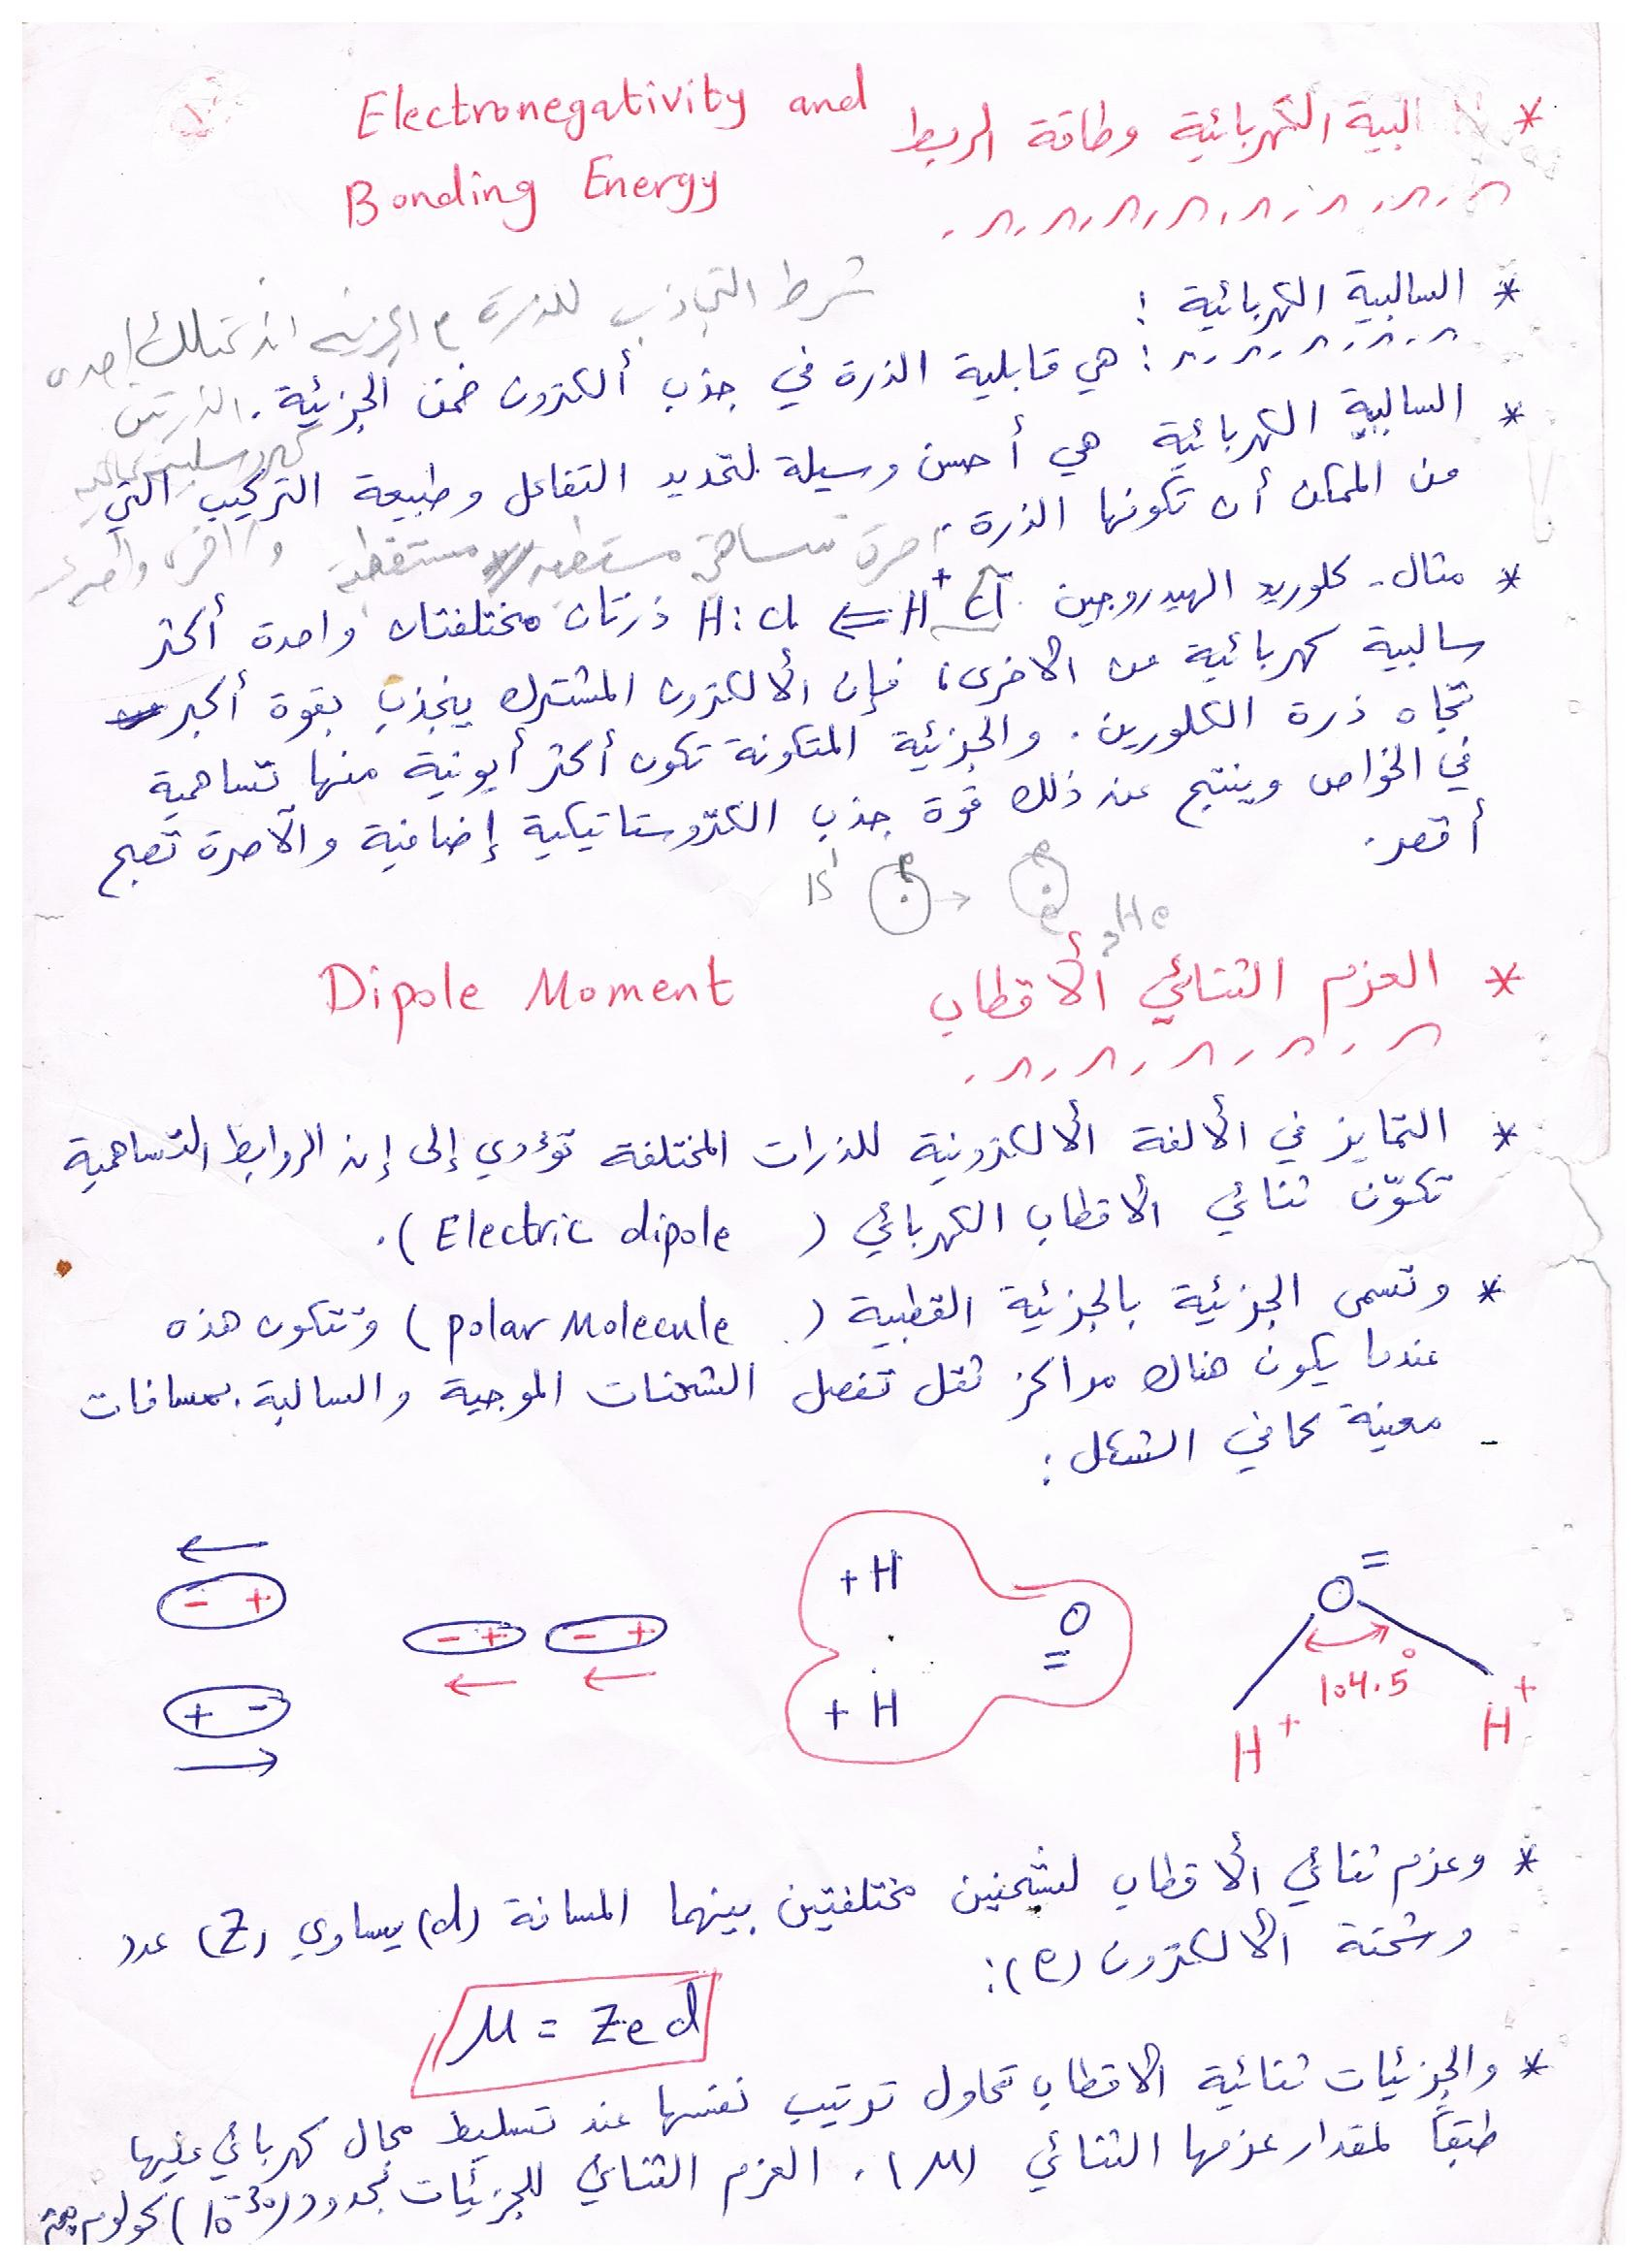 * السالبية الكهربائية وطاقة الربط Electronegativity and
Bonding Energy
* السالبية الكهربائية :
شرط التجاذب للذرة
: هي قابلية الذرة في جذب ألكترون ضمن الجزيئة.
* السالبية الكهربائية هي أحسن وسيلة لتحديد التفاعل وطبيعة التركيب التي
من الممكن أن تكونها الذرة.
* مثال - كلوريد الهيدروجين H⁺ Cl⁻ ⇐ H:Cl ذرتان مختلفتان واحدة أكثر
سالبية كهربائية من الأخرى، فإن الألكترون المشترك ينجذب بقوة أكبر
تجاه ذرة الكلورين. والجزيئة المتكونة تكون أكثر أيونية منها تساهمية
في الخواص وينتج عن ذلك قوة جذب الكتروستاتيكية إضافية والآصرة تصبح
أقصر.
1S¹ e → e e ₂He
* العزم الثنائي الأقطاب Dipole Moment
* التمايز في الألفة الألكترونية للذرات المختلفة تؤدي إلى إن الروابط التساهمية
تكوّن ثنائي الأقطاب الكهربائي (Electric dipole).
* وتسمى الجزيئة بالجزيئة القطبية (polar Molecule) وتتكون هذه
عندما يكون هناك مراكز ثقل تفصل الشحنات الموجبة والسالبة بمسافات
معينة كما في الشكل:
O =
104.5°
H⁺ H⁺
+ H
O =
+ H
- + - +
- +
+ -
* وعزم ثنائي الأقطاب لشحنتين مختلفتين بينهما المسافة (d) يساوي (Z) عدد
وشحنة الألكترون (e):
μ = Zed
* والجزيئات ثنائية الأقطاب تحاول ترتيب نفسها عند تسليط مجال كهربائي عليها
طبقاً لمقدار عزمها الثنائي (μ). العزم الثنائي للجزيئات بحدود (10⁻³⁰) كولوم.متر